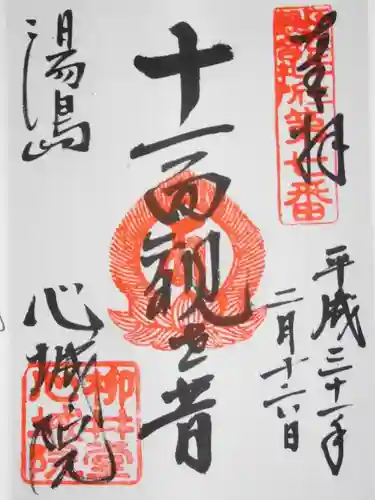 奉拝
札所第七番
平成三十一年
二月十六日
十一面観世音
湯島
心城院
柳井堂
心城院